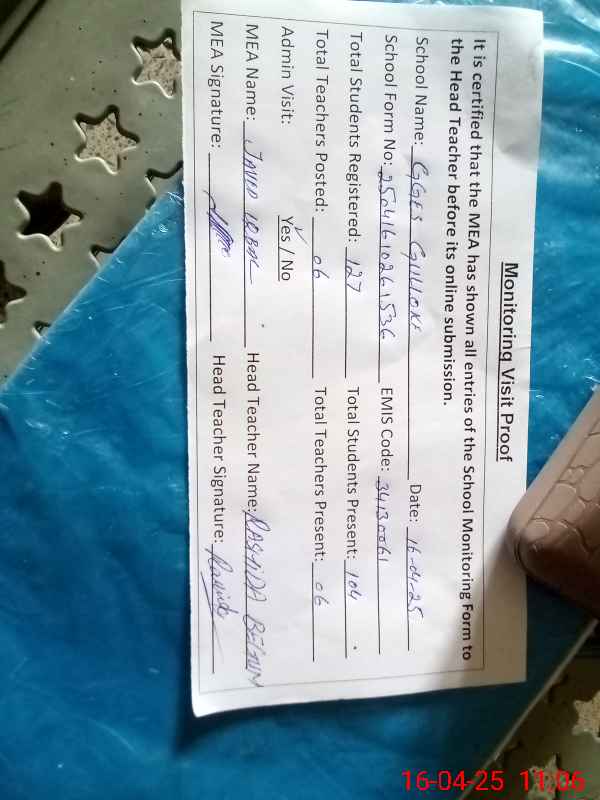 Monitoring Visit Proof
It is certified that the MEA has shown all entries of the School Monitoring Form to
the Head Teacher before its online submission.
School Name: GGES Date: 16-04-25
School Form No: 25041610261536 EMIS Code: 34130061
Total Students Registered: 127 Total Students Present: 104
Total Teachers Posted: 06 Total Teachers Present: 06
Admin Visit: Yes / No
MEA Name: JAVED IQBAL Head Teacher Name: RASHIDA BEGUM
MEA Signature: Head Teacher Signature: Rashida
16-04-25 11:06